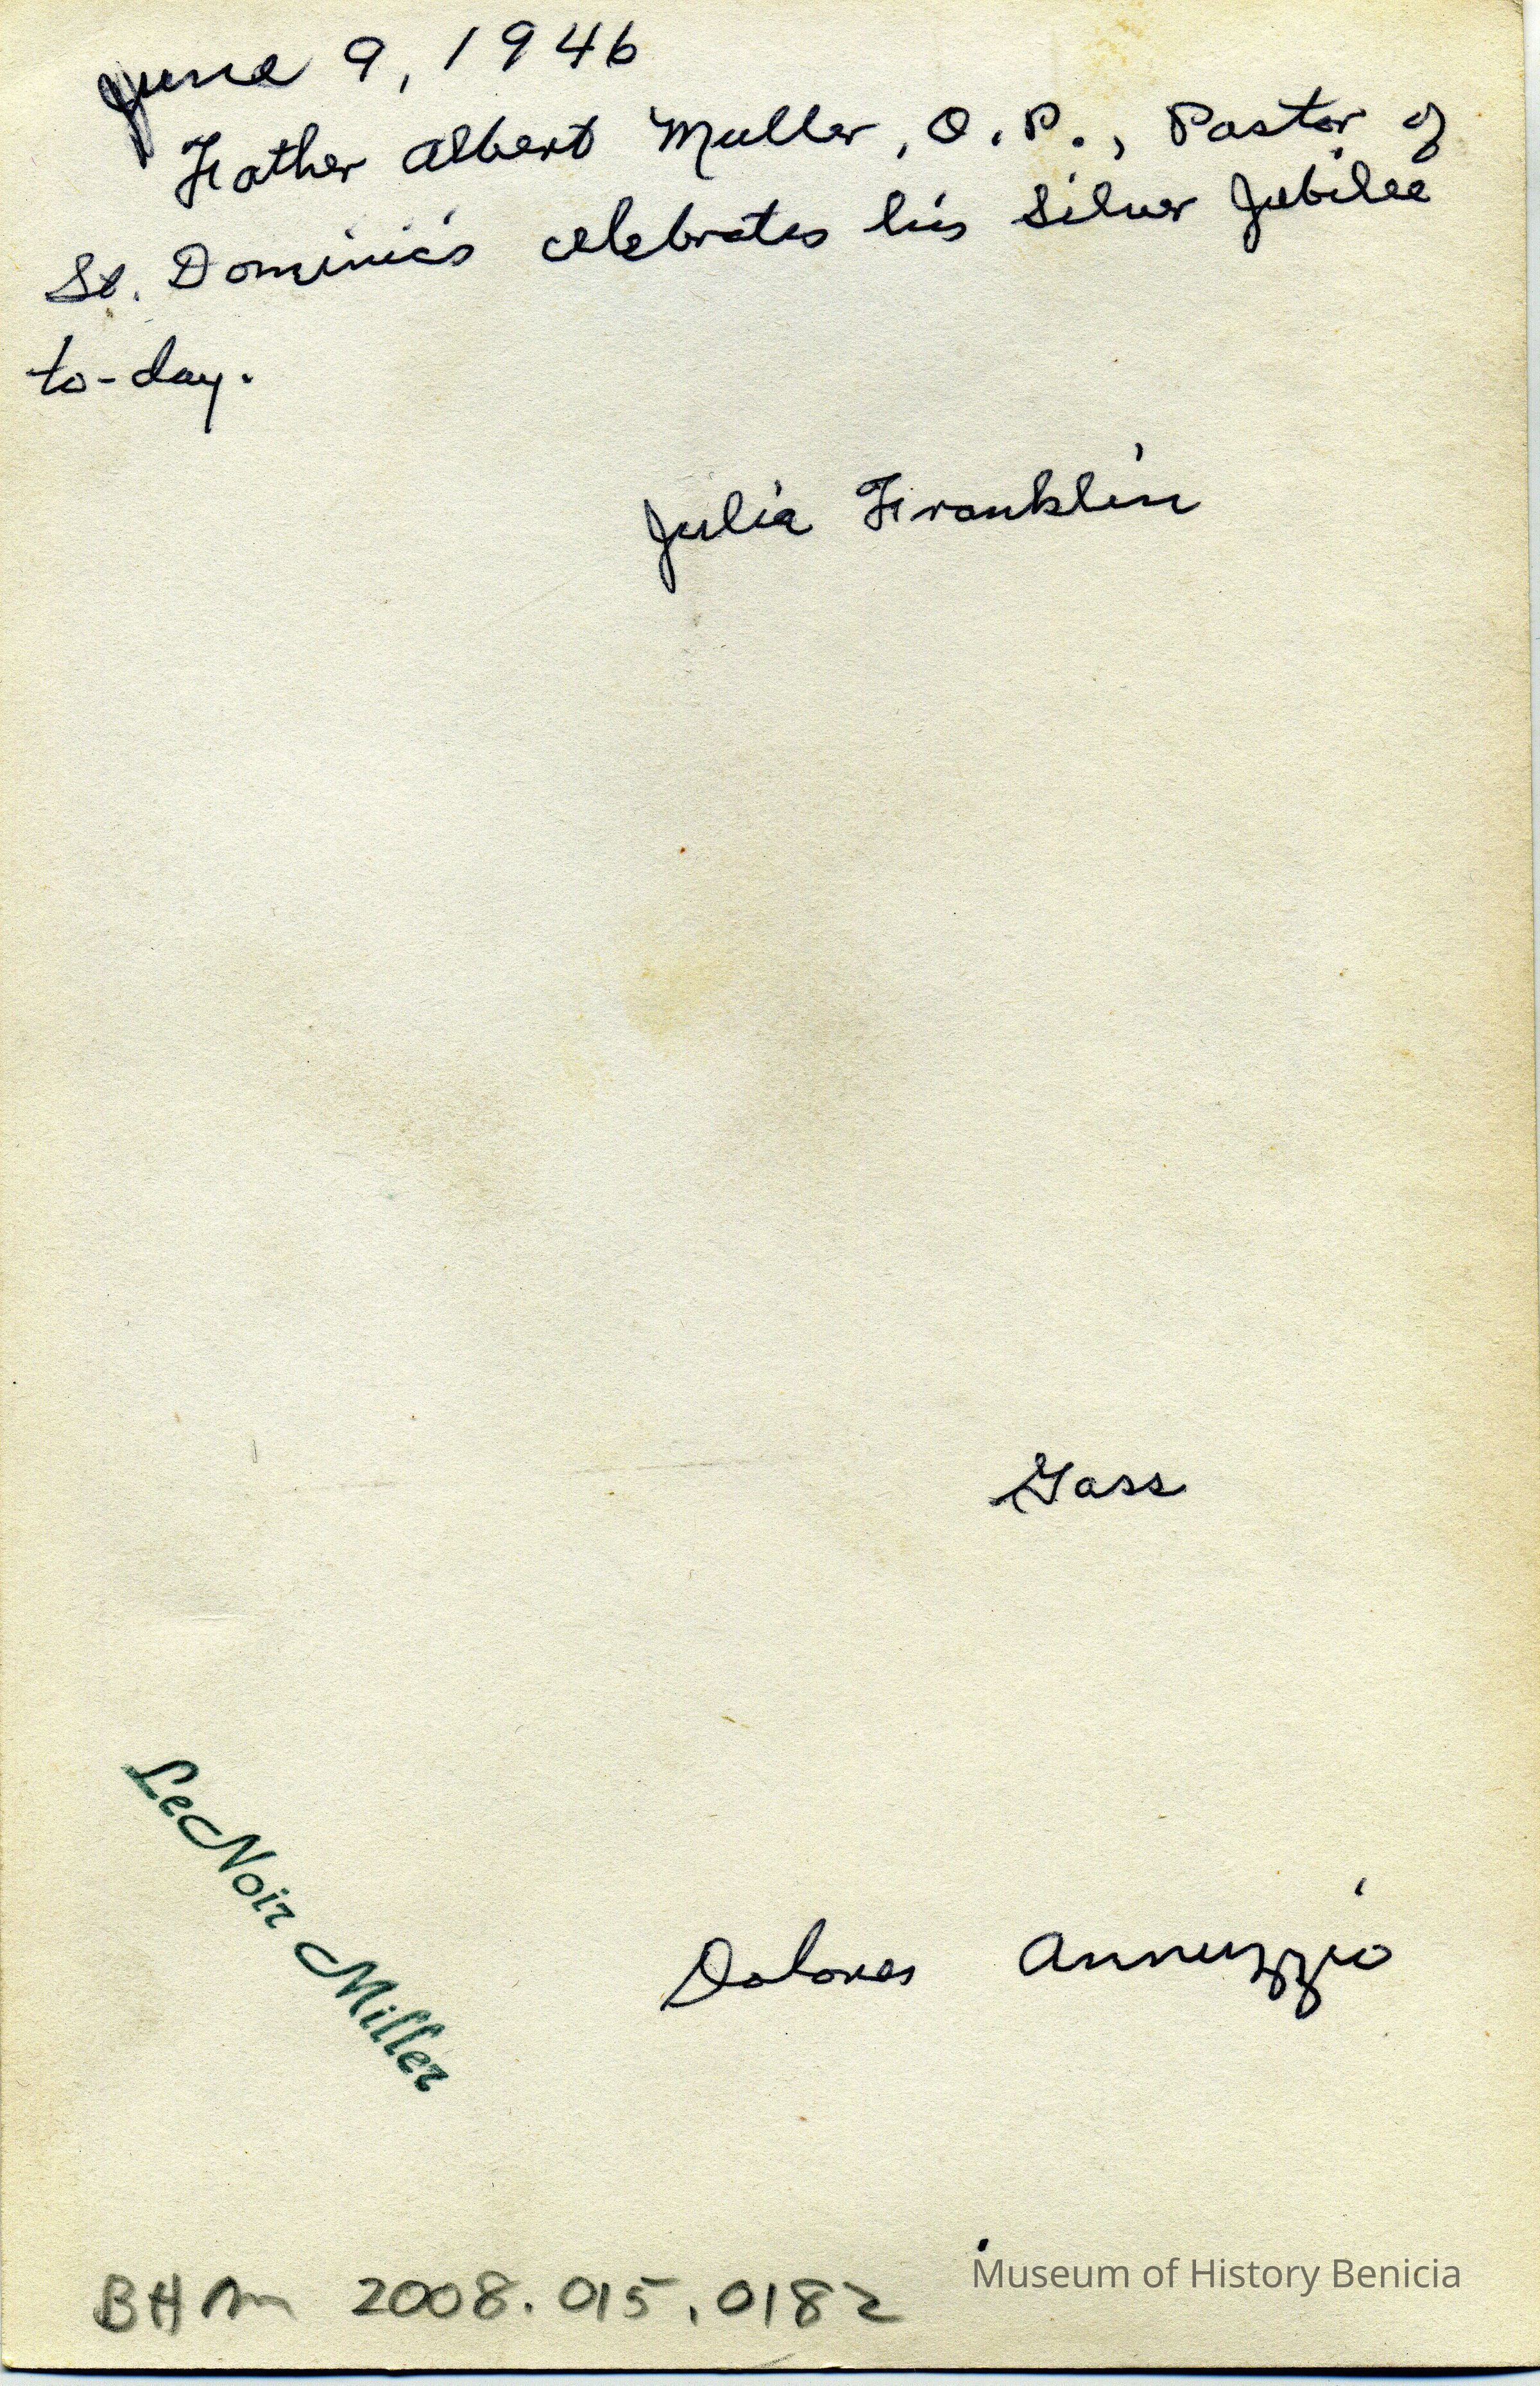 June 9, 1946
Father Albert Muller, O.P., Pastor of
St. Dominic's celebrates his Silver Jubilee
to-day.
Julia Franklin
Gass
LeNoir Miller
Dolores Annuzzio
Museum of History Benicia
BHM 2008.015.0182